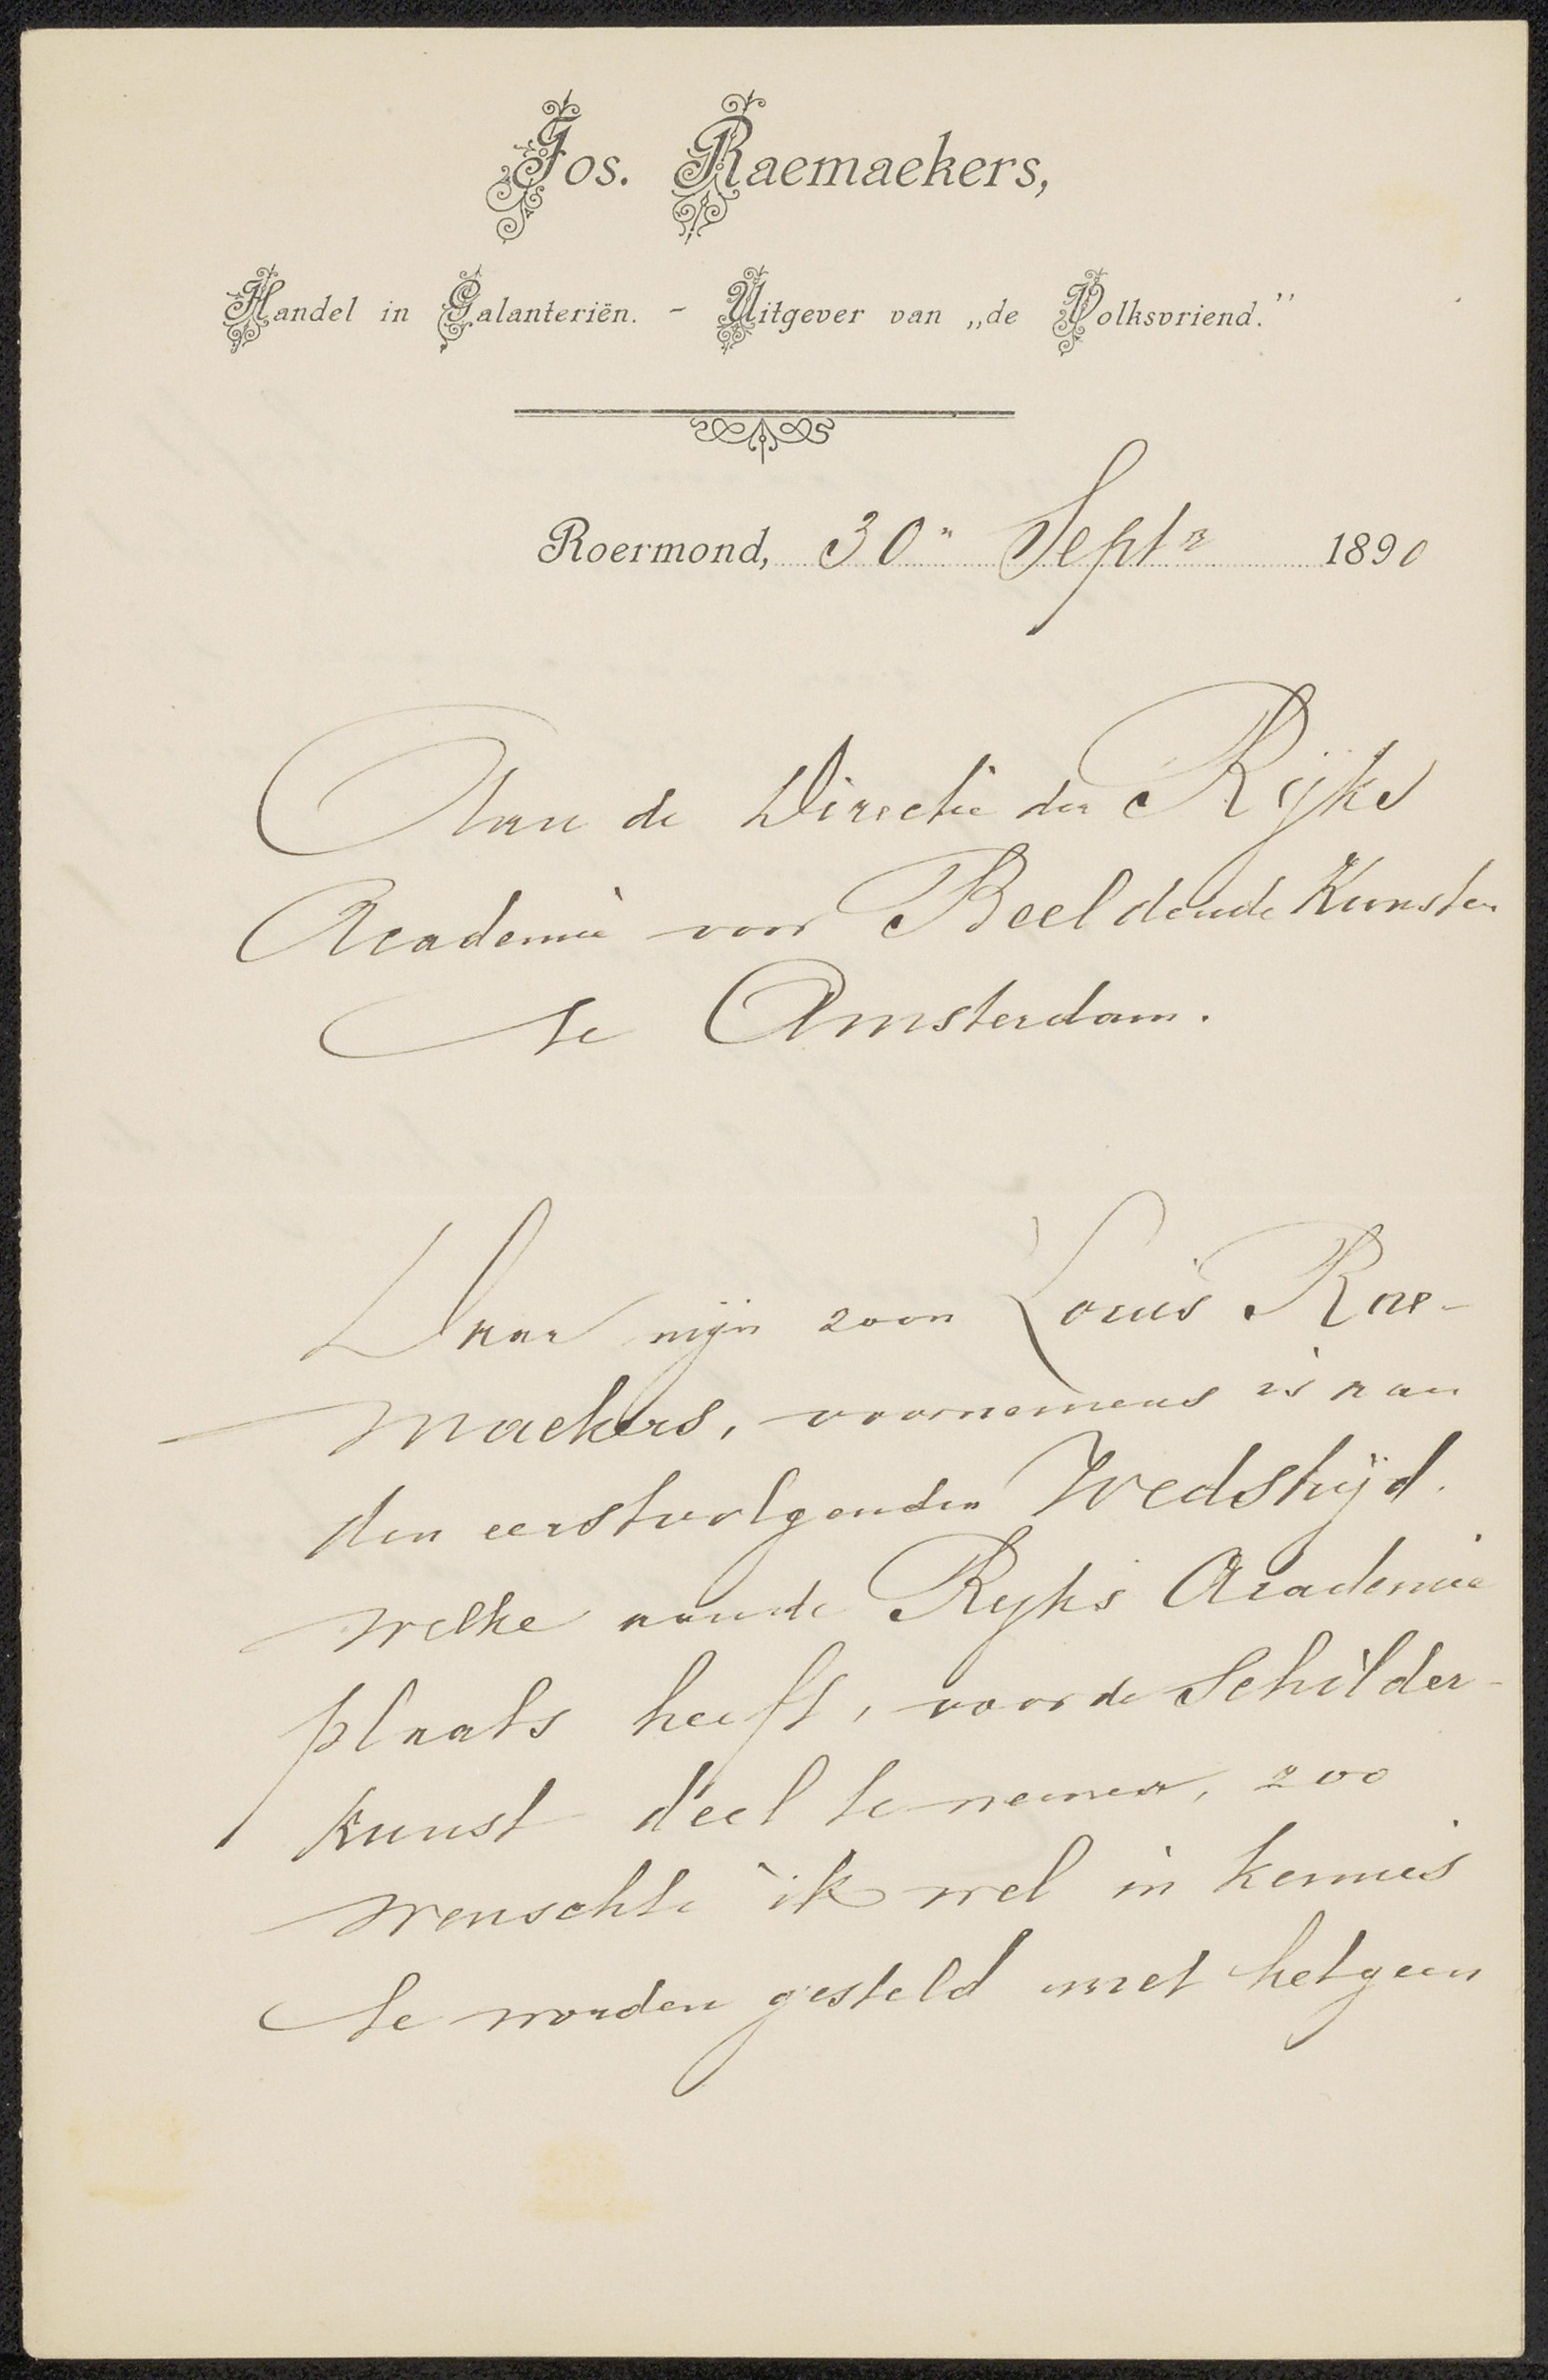 Jos. Raemaekers,
Handel in Galanteriën. - Uitgever van „de Volksvriend.”
Roermond, 30" Septr 1890
Aan de Directie der Rijks
Academie voor Beeldende Kunsten
te Amsterdam.
Daar mijn zoon Louis Rae-
maekers, voornemens is aan
den eerstvolgenden Wedstrijd.
welke aan de Rijks Academie
plaats heeft, voor de Schilder-
kunst deel te nemen, zoo
wenschte ik wel in kennis
te worden gesteld met hetgeen